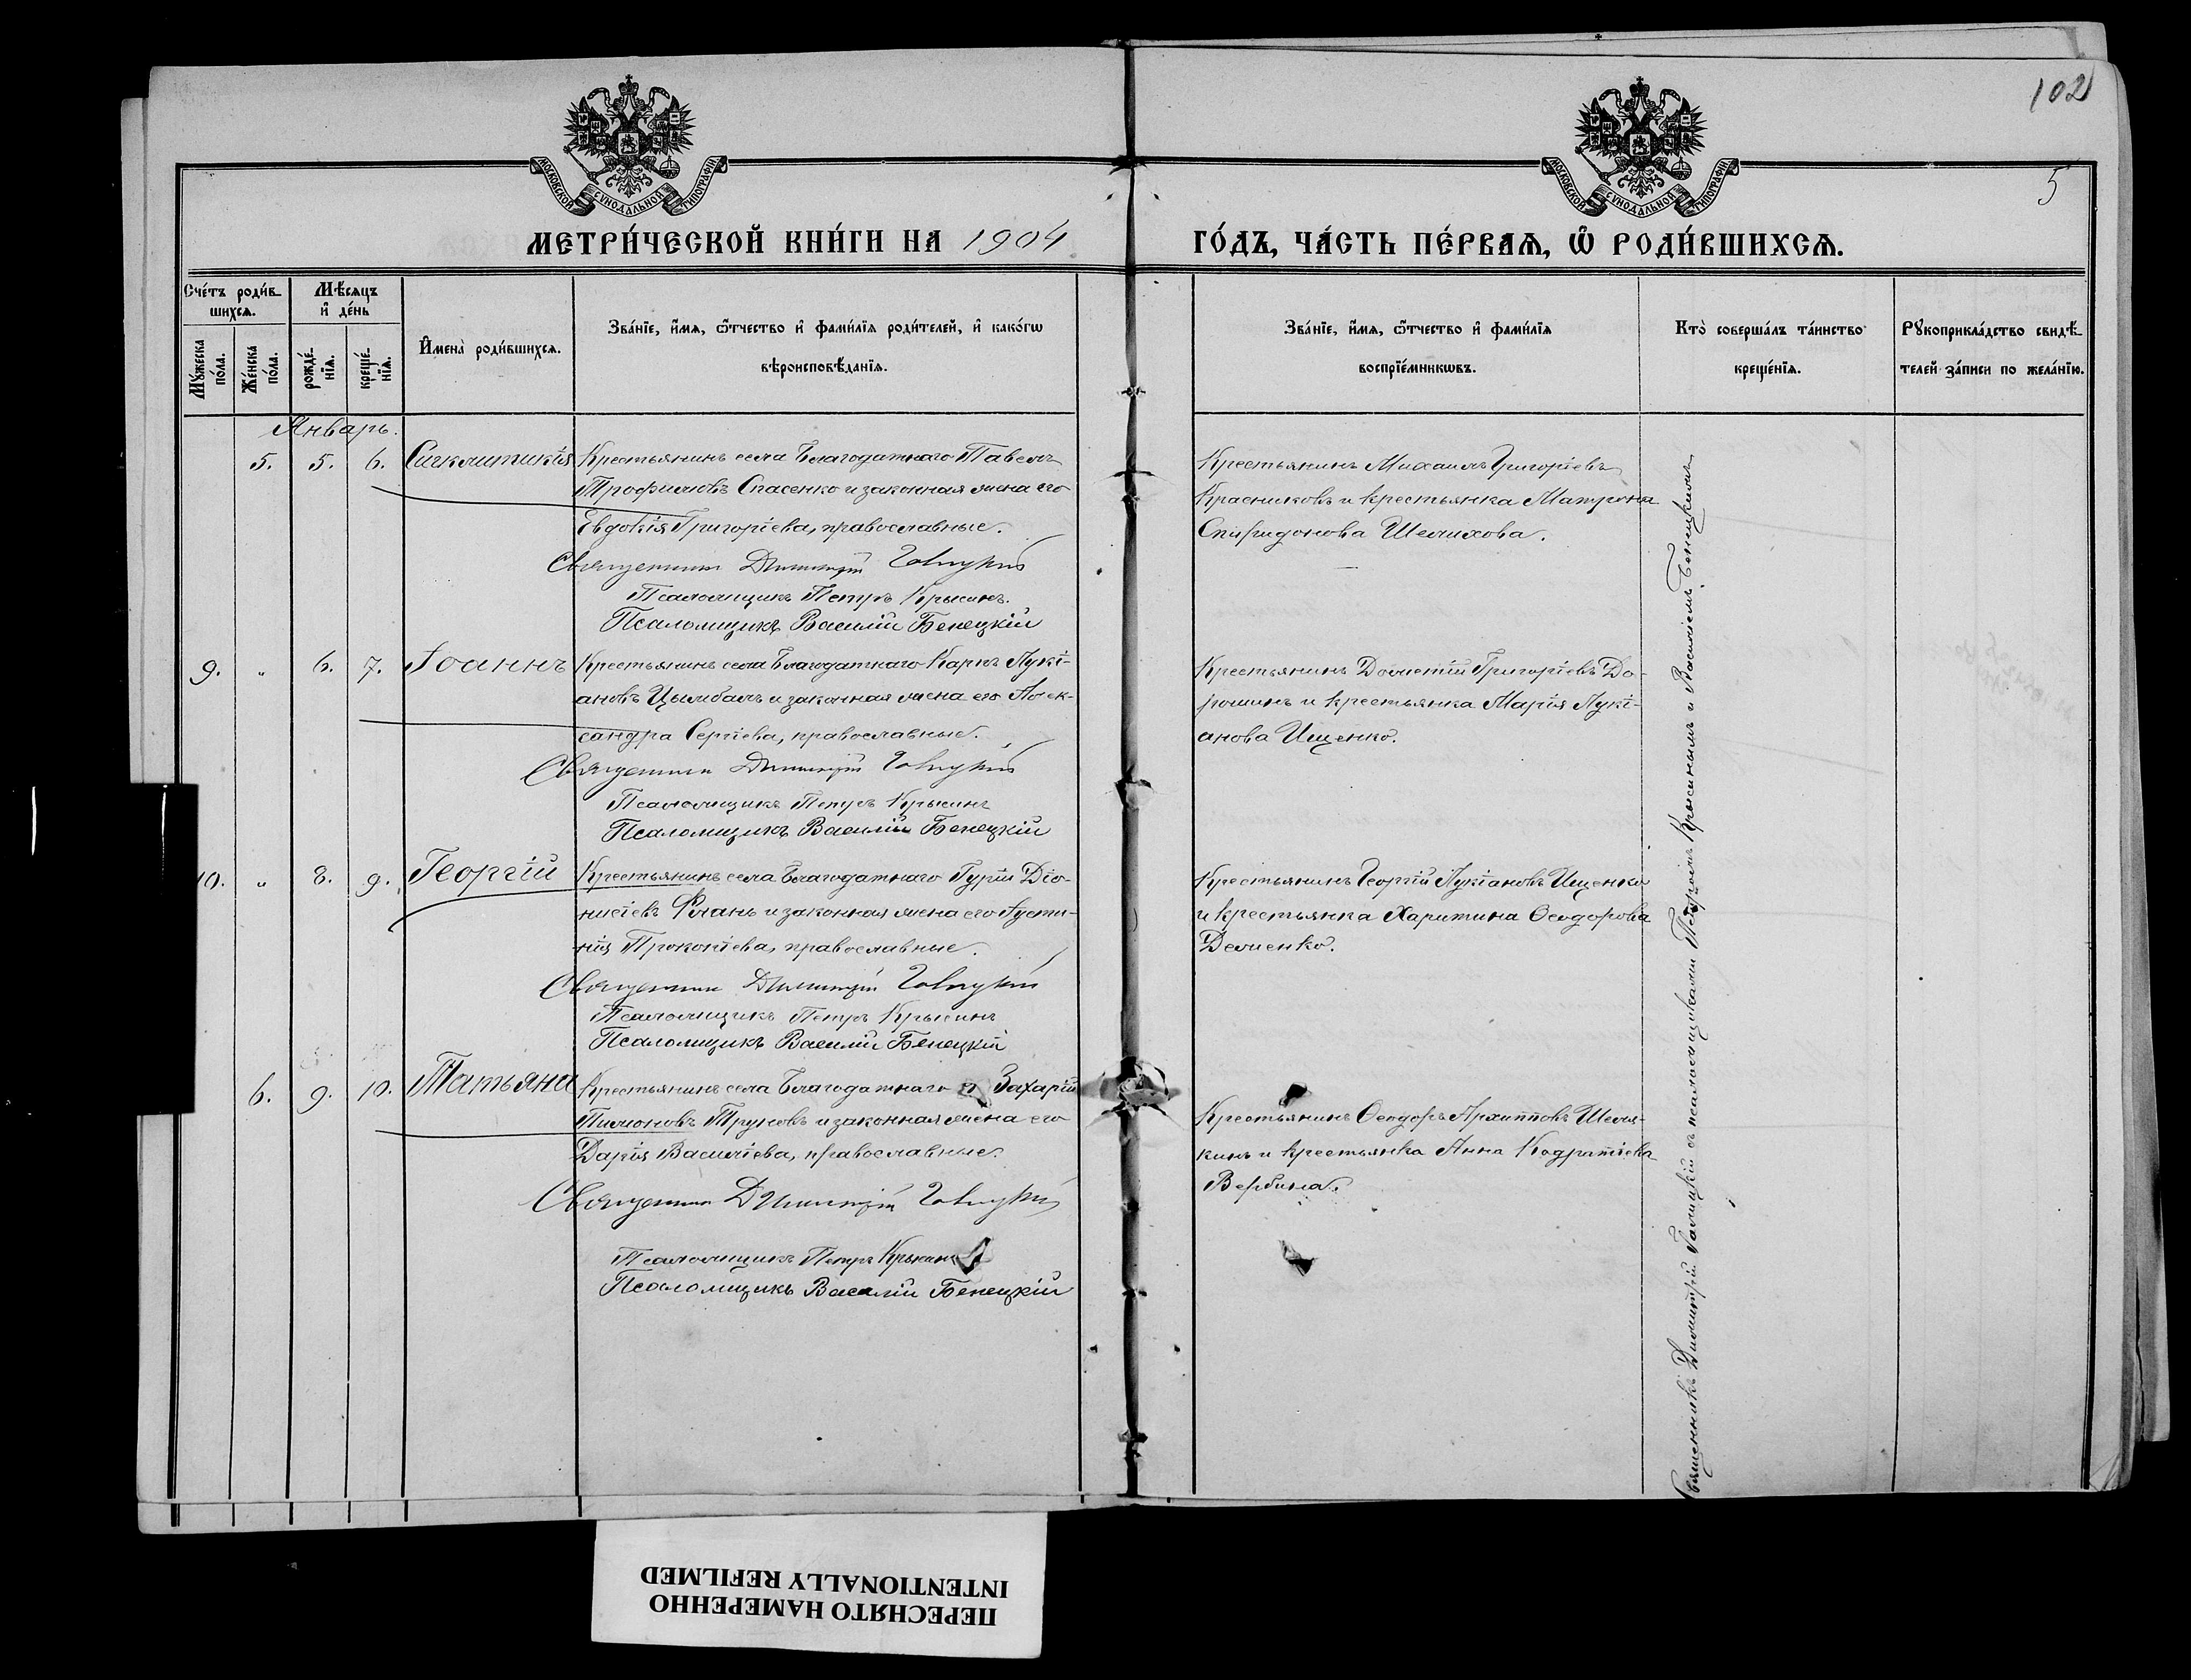 102
5
МОСКОВСКОЙ СѴНОДАЛЬНОЙ ТИПОГРАФІИ
МОСКОВСКОЙ СѴНОДАЛЬНОЙ ТИПОГРАФІИ
МЕТРИ́ЧЕСКОЙ КНИ́ГИ НА 1904
ГО́ДЪ, ЧА́СТЬ ПЕ́РВАѦ, Ѡ҆ РОДИ́ВШИХСѦ.
Сче́тъ роди́в-
шихсѧ.
Мѣ́сѧцъ
и҆ де́нь
Мꙋ́жеска
по́ла.
Же́нска
по́ла.
рожде́-
нїѧ.
креще́-
нїѧ.
И҆мена̀ роди́вшихсѧ.
Зва́нїе, и҆́мѧ, ѻ҆́тчество и҆ фами́лїѧ роди́телей, и҆ како́гѡ
вѣроисповѣ́данїѧ.
Зва́нїе, и҆́мѧ, ѻ҆́тчество и҆ фами́лїѧ
воспрїе́мникѡвъ.
Кто̀ соверша́лъ та́инство
креще́нїѧ.
Рꙋкоприкла́дство свидѣ́-
телей за́писи по жела́нїю.
Январь.
5. 5. 6. Сигклитикія Крестьянинъ села Благодатнаго Павелъ
Трофимовъ Спасенко и законная жена его
Евдокія Григоріева, православные.
Священникъ Димитрій Галицкій
Псаломщикъ Петръ Крысинъ.
Псаломщикъ Василій Бенецкій
Крестьянинъ Михаилъ Григоріевъ
Красниковъ и крестьянка Матрона
Спиридонова Шелихова.
9. „ 6. 7. Іоаннъ Крестьянинъ села Благодатнаго Карпъ Лукі-
ановъ Цымбалъ и законная жена его Алек-
сандра Сергіева, православные.
Священникъ Димитрій Галицкій
Псаломщикъ Петръ Крысинъ
Псаломщикъ Василій Бенецкій
Крестьянинъ Дометій Григоріевъ До-
рошинъ и крестьянка Марія Лукі-
анова Ищенко.
10. „ 8. 9. Георгій Крестьянинъ села Благодатнаго Гурій Діо-
нисіевъ и законная жена его Іусти-
нія Прокопіева, православные.
Священникъ Димитрій Галицкій
Псаломщикъ Петръ Крысинъ
Псаломщикъ Василій Бенецкій
Крестьянинъ Георгій Лукіановъ Ищенко
и крестьянка Харитина Ѳеодорова
Демченко.
6. 9. 10. Татьяна Крестьянинъ села Благодатнаго Захарій
Пимоновъ Труновъ и законная жена его
Дарія Василіева, православные.
Священникъ Димитрій Галицкій
Псаломщикъ Петръ Крысинъ
Псаломщикъ Василій Бенецкій
Крестьянинъ Ѳеодоръ Архипповъ Шеля-
кинъ и крестьянка Анна Кодратіева
Вербина.
Священникъ Димитрій Галицкій съ псаломщиками Петромъ Крысинымъ и Василіемъ Бенецкимъ
ПЕРЕСНЯТО НАМЕРЕННО
INTENTIONALLY REFILMED